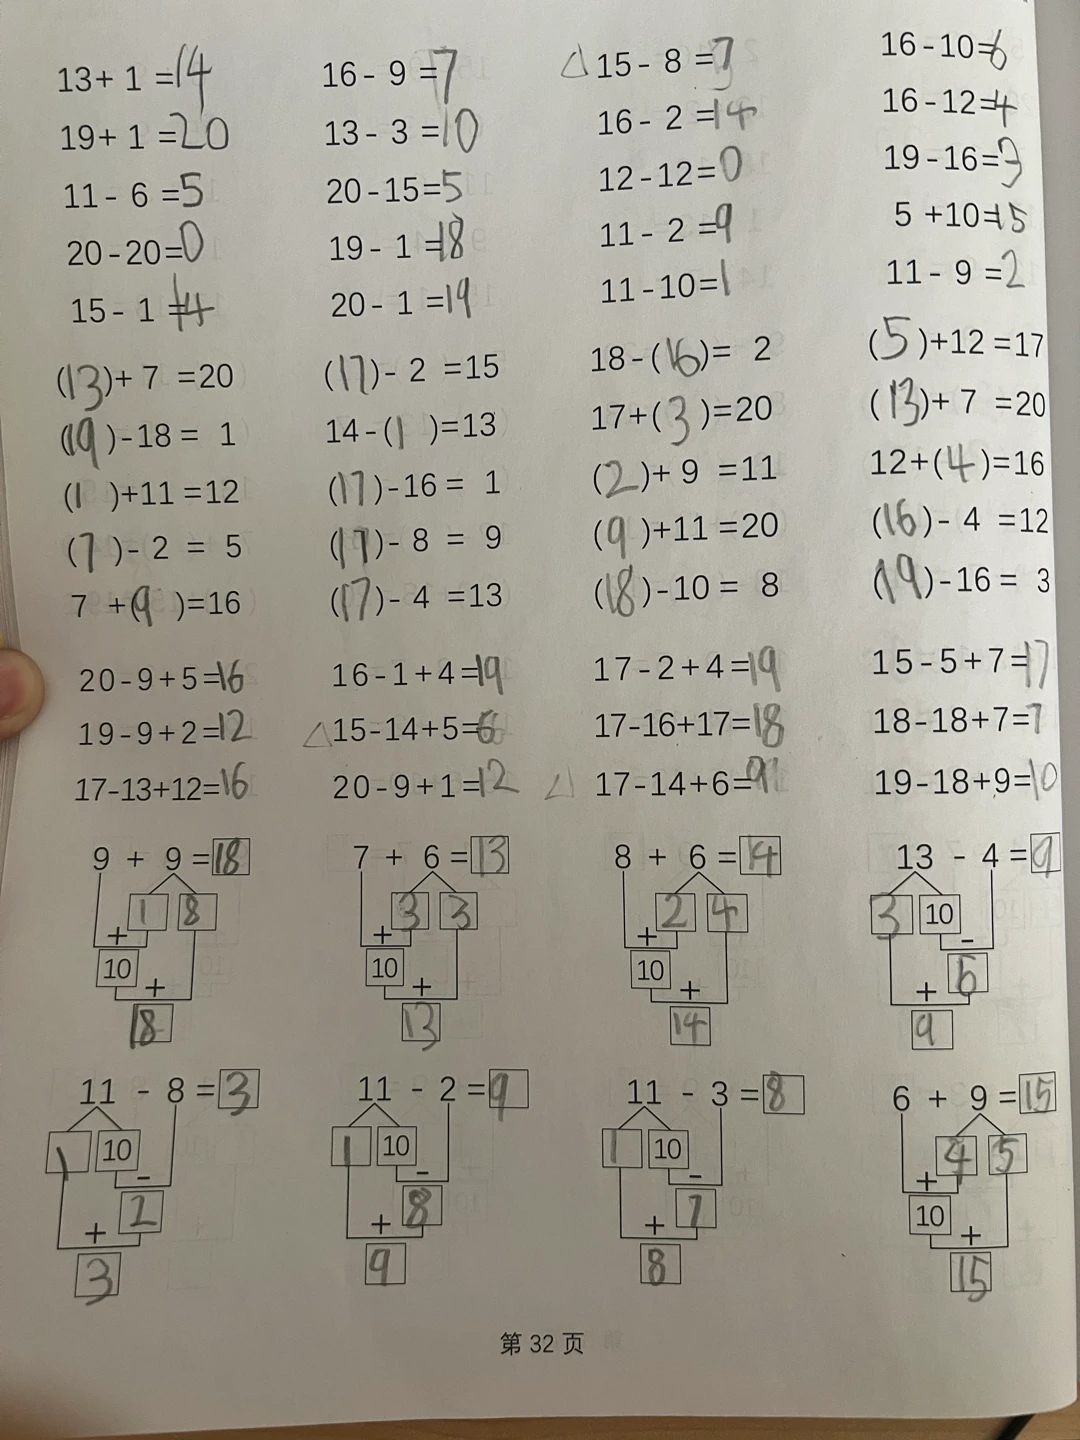 13+ 1 =14 16- 9 =7 △15- 8 =7 16-10=6
19+ 1 =20 13- 3 =10 16- 2 =14 16-12=4
11- 6 =5 20-15=5 12-12=0 19-16=3
20-20=0 19- 1 =18 11- 2 =9 5 +10=15
15- 1 =14 20- 1 =19 11-10=1 11- 9 =2
(13)+ 7 =20 (17)- 2 =15 18-(16)= 2 (5)+12=17
(19)-18= 1 14-(1)=13 17+(3)=20 (13)+ 7 =20
(1)+11=12 (17)-16= 1 (2)+ 9 =11 12+(4)=16
(7)- 2 = 5 (17)- 8 = 9 (9)+11=20 (16)- 4 =12
7 +(9)=16 (17)- 4 =13 (18)-10= 8 (19)-16= 3
20-9+5=16 16-1+4=19 17-2+4=19 15-5+7=17
19-9+2=12 △15-14+5=6 17-16+17=18 18-18+7=7
17-13+12=16 20-9+1=12 △17-14+6=9 19-18+9=10
9 + 9 =18 7 + 6 =13 8 + 6 =14 13 - 4 =9
1 8 3 3 2 4 3 10
+ + + -
10 10 10 6
+ + + +
18 13 14 9
11 - 8 =3 11 - 2 =9 11 - 3 =8 6 + 9 =15
1 10 1 10 1 10 4 5
- - - +
2 8 7 10
+ + + +
3 9 8 15
第 32 页